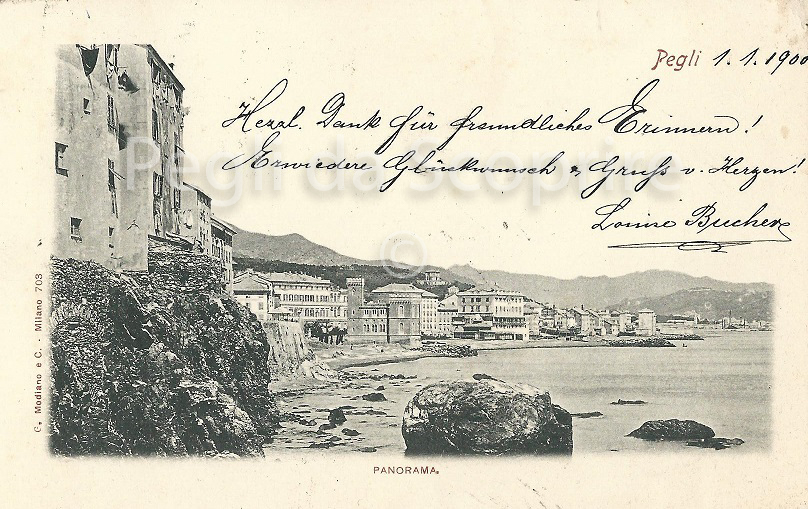 Pegli 1. 1. 1900
Herzl. Dank für freundliches Erinnern!
Erwiedere Glückwunsch & Gruß v. Herzen!
Louise Bucher
Pegli da Scoprire
©
G. Modiano e C. - Milano 703
PANORAMA.